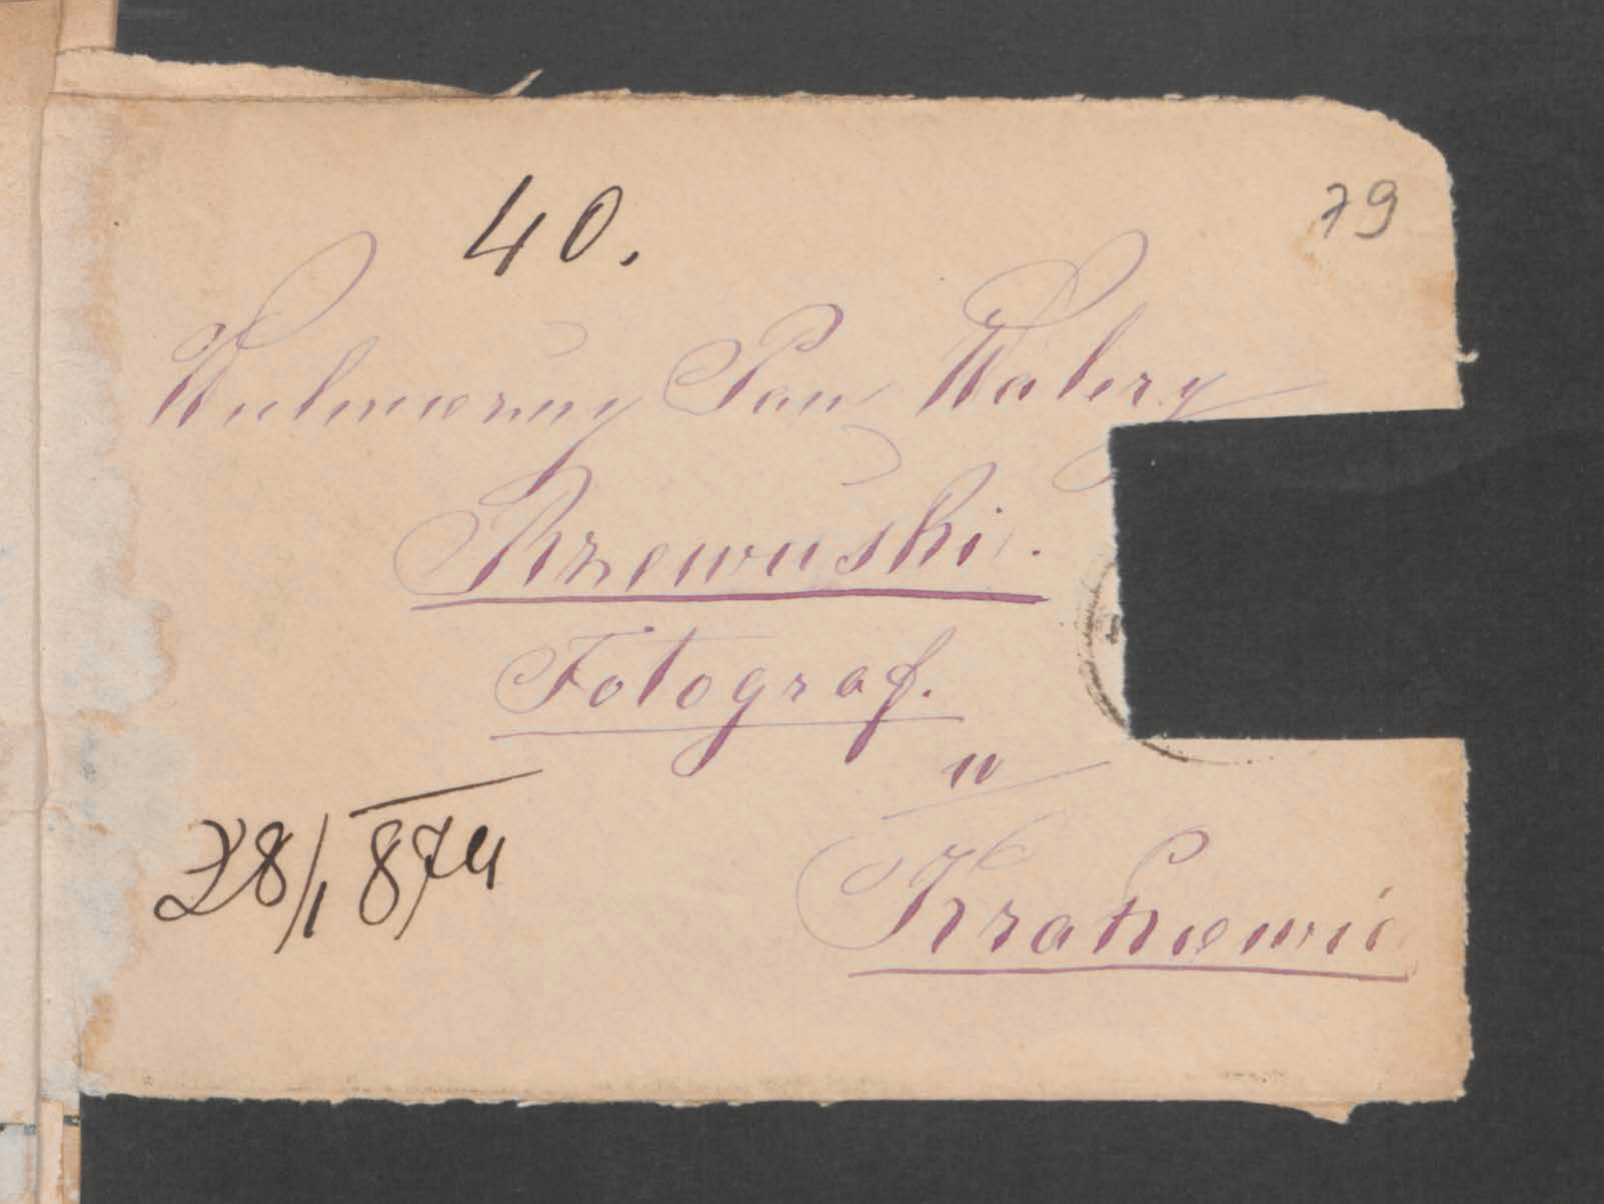 79
40.
Wielmorzny Pan Walery
Rzewuski.
Fotograf.
w
Krakowie
28/1 874